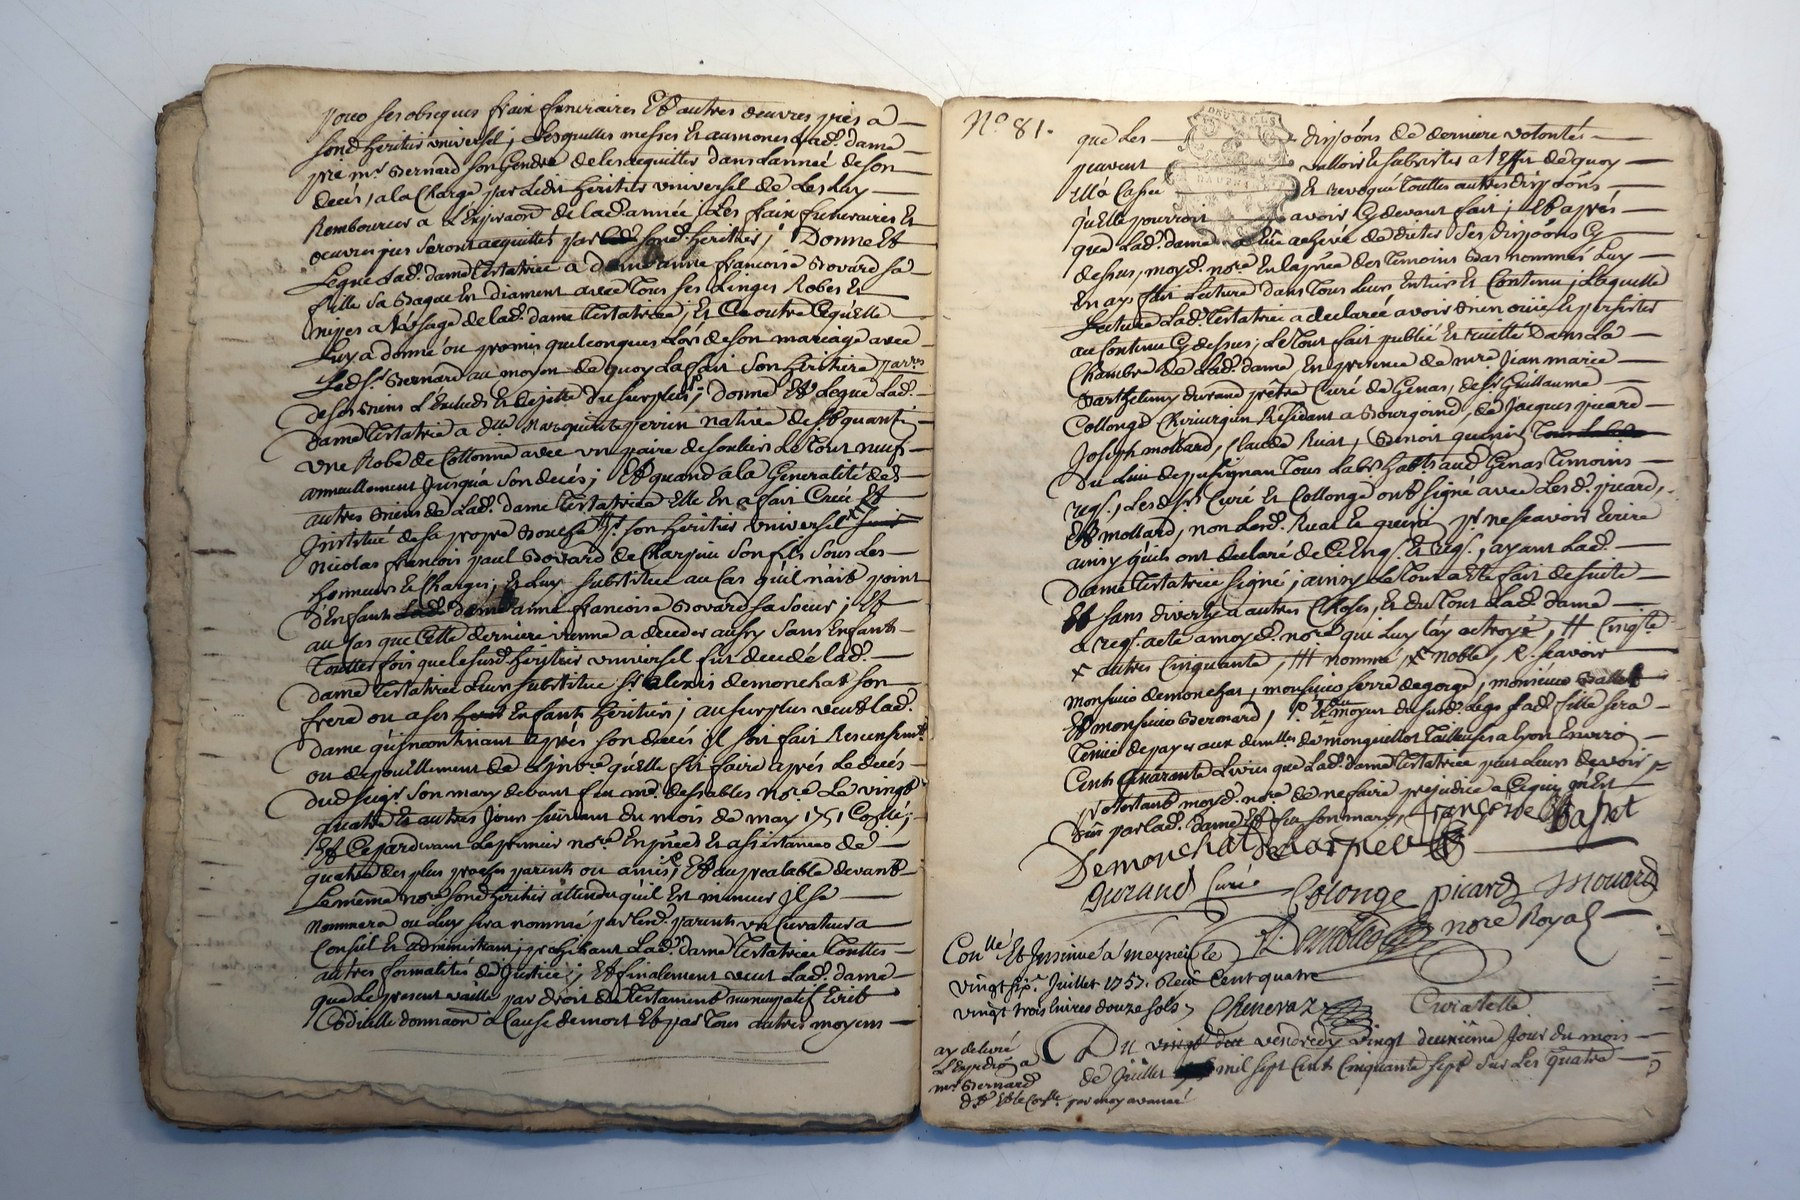 pour ses obseques fraix funeraires Et autres œuvres pies a
sond. heritier universel ; Lesquelles messes Et aumones lad. dame
prie mr. Bernard son Gendre de les acquitter dans L'année de son
decés, a la Charge par Ledit heritier universel de Les Luy
Rembourcer a L'Expiraon de lad. année ; Les fraix funeraires Et
œuvres pies seront acquittés par sond. heritier ; Donne Et
Legue Lad. dame testatrice a dame anne françoise Bovard sa
fille sa Bague En diament avec tous ses Linges Robes Et
nipes a l'usage de lad. dame testatrice ; Et Ce outre Ce qu'elle
Luy a donné ou promis quelconques Lors de son mariage avec
Led. sr. Bernard au moyen de quoy La fait son heritiere parre
de ses Biens L'Exclud Et dejette du surplus ; donne Et Legue Lad.
dame testatrice a dlle. Marguerite perrin native de St quantin
une Robe de Cottonne avec un paire de souliers Le tout neuf
annuellement Jusqu'a son decés ; Et quand a la Generalité des
autres Biens de Lad. dame testatrice Elle En a fait Créé Et
Institué de sa propre Bouche # sr. son heritier universel
Nicolas françois paul Bovard de Charpieu son fils sous Les
honneurs Et Charges, Et Luy substitue au Cas qu'il n'ait point
d'Enfants dame anne françoise Bovard sa sœur ; Et
au Cas que Cette derniere vienne a deceder aussy sans Enfants
Touttes fois que le susd. heritier universel fut decedé lad.
dame testatrice Leur substitue sr. alexis demonchat son
frere ou a ses Enfants heritiers ; au surplus veut lad.
dame qu'incontinant aprés son decés Il soit fait Recensemt.
ou depouillement de L'Invre. qu'elle fit faire aprés Le decés
dud. seigr. son mary devant feu me. desables Nore. Le vingt
quatre Et autres Jours suivant du mois de may 1751 Coslé ;
Et Ce pardevant Le premier nore. En prées Et assistances de
quatre des plus proches parents ou amis, Et au prealable devant
Le même nore. sond. heritier attendu qu'il Est mineur Il se
nommera ou Luy sera nommé par sesd. parents un Curateur a
Conseil Et administraon, prohibant Lad. dame testatrice touttes
autres formalités de Justice ; Et finalement veut Lad. dame
que Le present vaille par droit de Testament nuncupatif Ecrit
Codicille donnaon a Cause de mort Et par tous autres moyens
No 81.
que Les dispoôns de derniere volontés
peuvent valloir Et subsister a l'Effet de quoy
Elle Casse Et revoque Touttes autres dispoôns,
qu'Elle pourroit avoir Cy devant fait ; Et aprés
que Lad. dame a Eû achevé de dicter Ses dispoôns Cy
dessus, moyd. nore. En la prée des temoins Bas nommés Luy
En ay fait Lecture dans tous Leur Entier Et Contenu ; Laquelle
Lecture Lad. testatrice a declarée avoir Bien ouïe Et persister
au Contenu Cy dessus ; Le tout fait publié Et recitté Dans La
Chambre de lad. dame En presence de mre. Jean marie
Barthelemy durand prêtre Curé de Genas, de sr. Guillaume
Collonge Chirurgien Residant a Bourgoind, de Jacques picard
Joseph mollard, Claude Ruat, Benoit quenin
du Lieu de pusignan tous Labrs habts. aud. Genas temoins
reqs., Lesd. srs. Curé Et Collonge ont signé avec Lesd. picard,
Et mollard, non Lesd. Ruat Et quenin pr. ne sçavoir Ecrire
ainsy qu'ils ont declaré de Ce Enqs. Et reqs., ayant Lad.
Dame testatrice signé ; ainsy Le tout a Eté fait de suite
Et sans divertir a autres Choses, Et du tout Lad. dame
a reqs. acte a moyd. nore. qui Luy l'ay octroyé, # Cinqte.
x autres Cinquante, ## nommé, x noble, R. sçavoir
monsieur demonchat, monsieur serre de gorge, monsieur Ballet
Et monsieur Bernard, au moyen du susd. Legs Lad. fille sera
Tenue de payer aux dmlles. de monquellot tailleuses a Lyon Environ
Cent Quarante Livres que Lad. dame testatrice peut Leurs devoir
protestant moyd. nore. de ne faire prejudice a Ce qui m'Est
dû par lad. dame Et feu son mary, françoise Basset
Demonchat de charpieu
Durand Curé Colonge picard Mouard
nore Royal
Conllé. Et Insinué a meyrieu Le
vingt six. Juillet 1757. Reçu Cent quatre
vingt trois Livres douze sols, Chenevaz
Curatelle
ay delivré
L'Expedion a
mr. Bernard
Du vendredy vingt deuxième Jour du mois
de Juillet mil sept Cent Cinquante sept Sur Les quatre